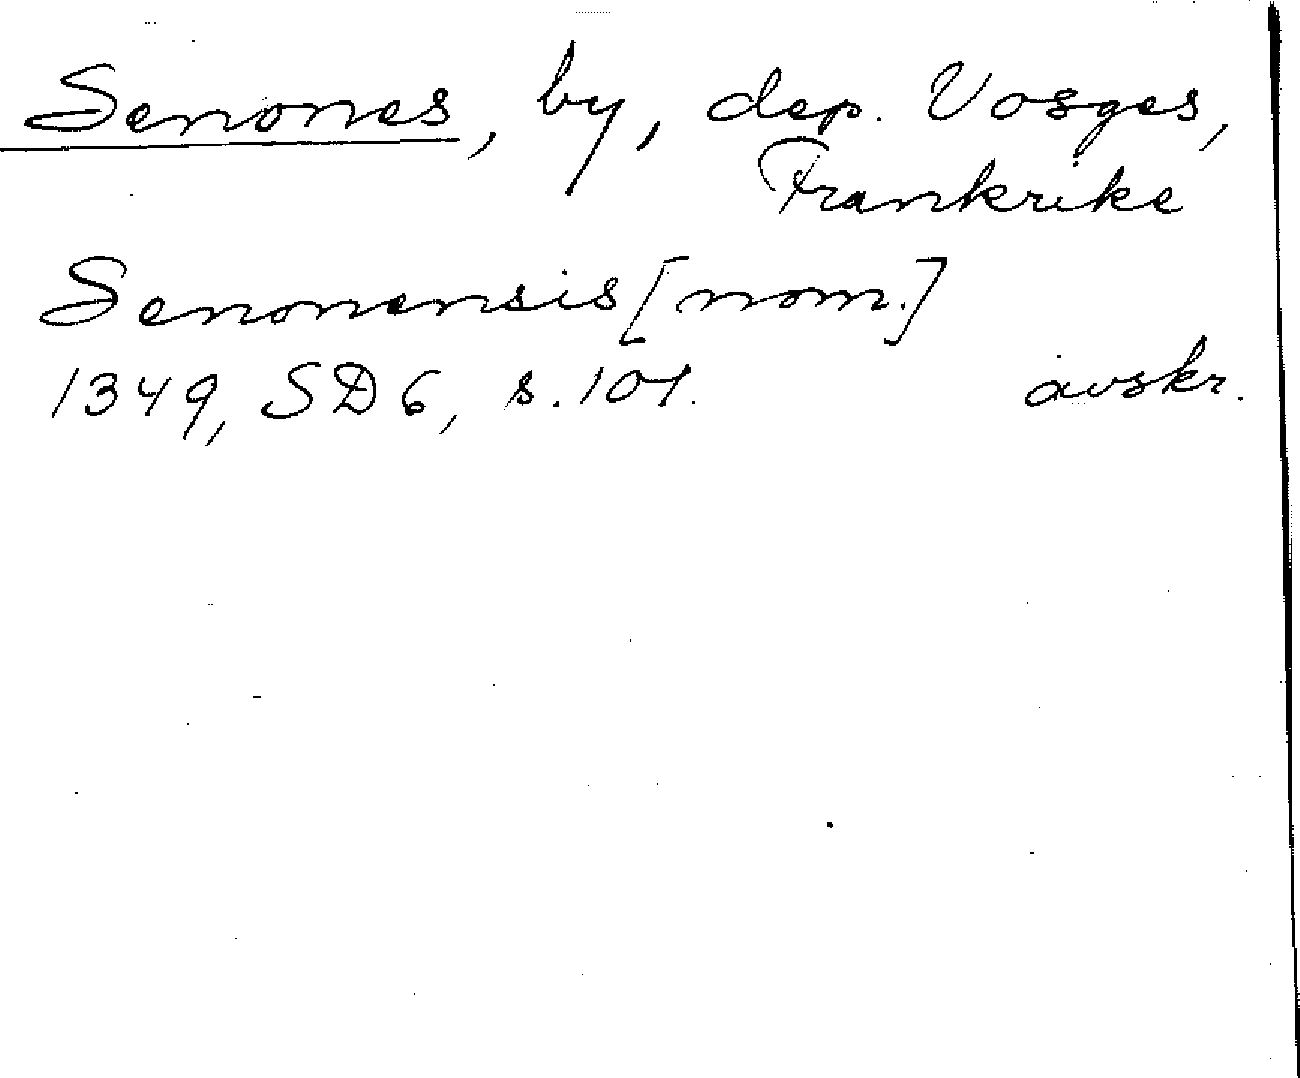 Senones, by, dep. Vosges,
Frankrike
Senonensis [nom.]
1349, SD 6, s. 101. avskr.